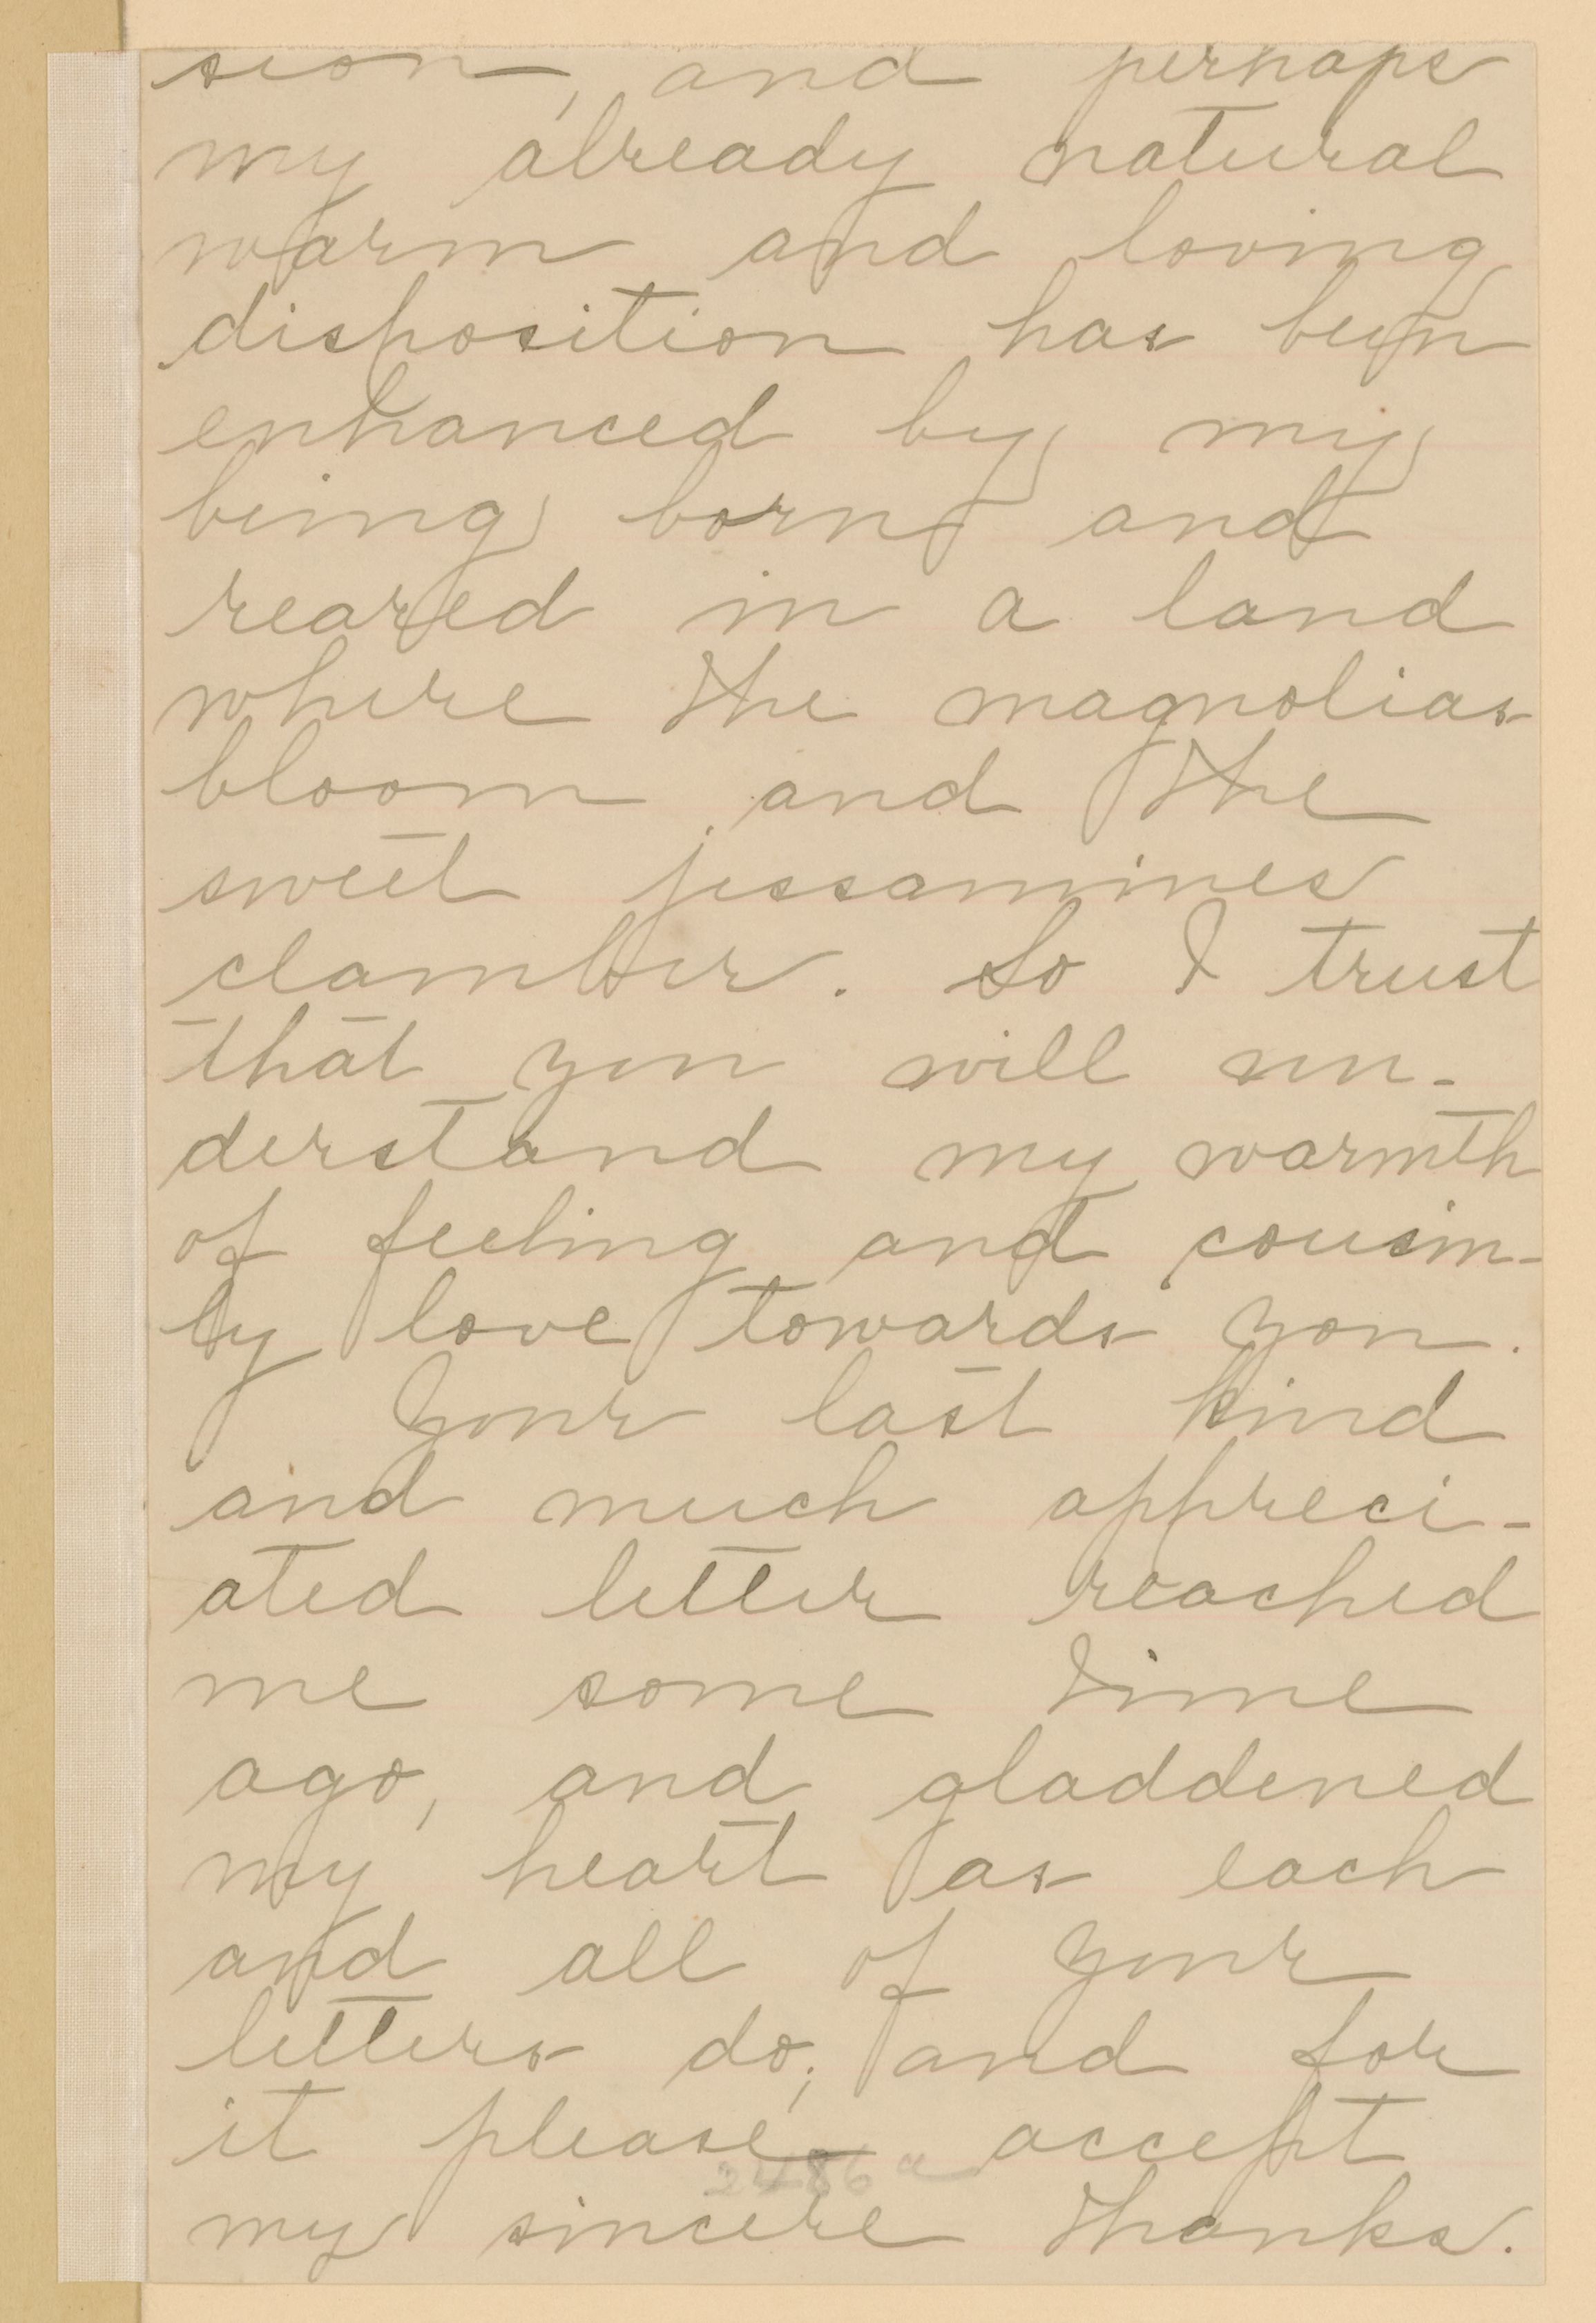 sion, and perhaps
my already natural
warm and loving
disposition has been
enhanced by my
being born and
reared in a land
where the magnolias
bloom and the
sweet jessamines
clamber. So I trust
that you will un-
derstand my warmth
of feeling and cousin-
ly love towards you.
Your last kind
and much appreci-
ated letter reached
me some time
ago, and gladdened
my heart as each
and all of your
letters do; and for
it please accept
2486 a
my sincere thanks.